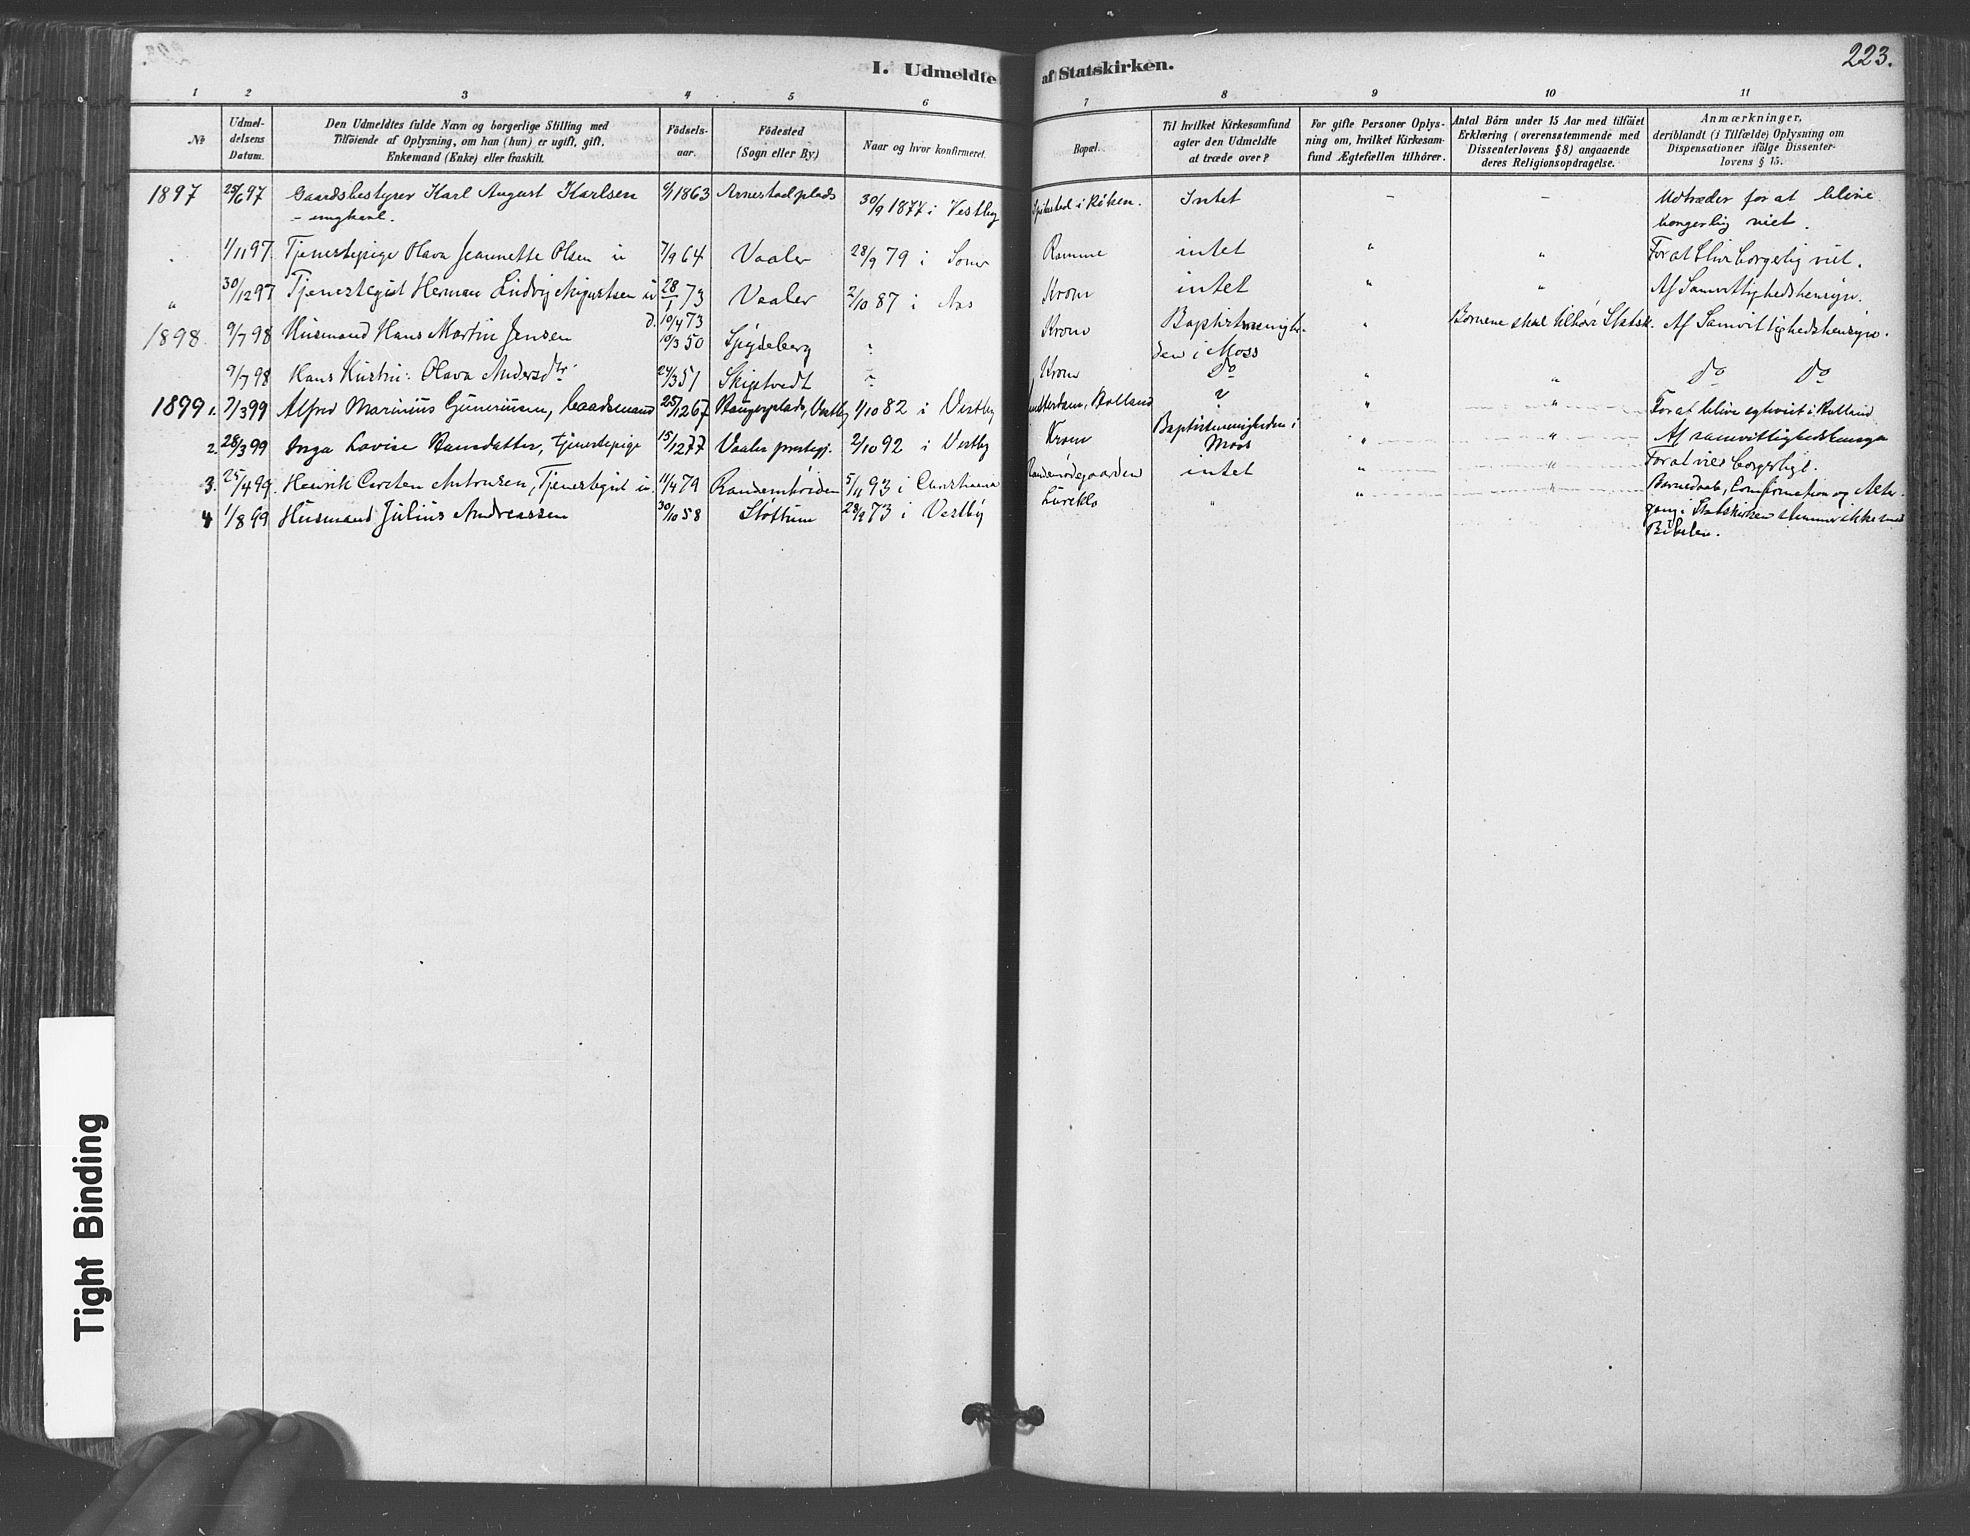 223.
I. Udmeldte af Statskirken.
1 2 3 4 5 6 7 8 9 10 11
№
Udmel-
delsens
Datum.
Den Udmeldtes fulde Navn og borgerlige Stilling med
Tilföiende af Oplysning, om han (hun) er ugift, gift,
Enkemand (Enke) eller fraskilt.
Födsels-
aar.
Födested
(Sogn eller By)
Naar og hvor konfirmeret.
Bopæl.
Til hvilket Kirkesamfund
agter den Udmeldte
at træde over?
For gifte Personer Oplys-
ning om, hvilket Kirkesam-
fund Ægtefællen tilhörer.
Antal Börn under 15 Aar med tilföiet
Erklæring (overensstemmende med
Dissenterlovens § 8) angaaende
deres Religionsopdragelse.
Anmærkninger,
deriblandt (i Tilfælde) Oplysning om
Dispensationer ifölge Dissenter-
lovens § 15.
1897 25/6 97 Gaardsbestyrer Karl August Karlsen 1863 Arnestad plads 30/9 1877 i Vestby i Röken. Intet – – Udtræder for at blive
– ungkarl. borgerlig viet.
1/11 97 Tjenestepige Olava Jeannette Olsen u 7/9 64 Vaaler 28/9 79 i Soner Ramme intet " " For at blive borgerlig viet.
" 30/12 97 Tjenestegut Herman Ludvig Sigurtsen u 28/1 73 Vaaler 2/10 87 i Aas Krom intet " " Af Samvittighedshensyn.
d. 10/4 73
1898. 9/7 98 Husmand Hans Martin Jensen 10/3 50 Spydeberg ? Krom Baptistmenighe- " Børnene skal tilhøre Statsk. Af Samvittighedshensyn.
den i Moss
9/7 98 Hans Hustru: Olava Andersdtr 24/3 51 Skiptvedt ? Krom Do " " Do Do
1899 1. 7/3 99 Alfred Marinius Gunerius­sen, Baadsmand 25/12 67 Vestby 1/10 82 i Vestby Holland ? " " For at blive i Holland
2. 28/3 99 Inga Lovise Hansdatter, tjenestepige 15/12 77 Vaaler prestegj. 2/10 92 i Vestby Krom Baptistmenigheden i " " Af samvittighedshensyn
Moss
3. 25/4 99 Henrik Carsten Antonsen, Tjenestegut u. 11/4 79 5/11 93 i Christiania intet " " For at vies borgerligt.
4 1/8 99 Husmand Julius Andreassen 30/10 58 Støttum 28/9 73 i Vestby " " Barnedaab, Confirmation og Alter-
gang i Statskirken stemmer ikke med
Bibelen.
Tight Binding